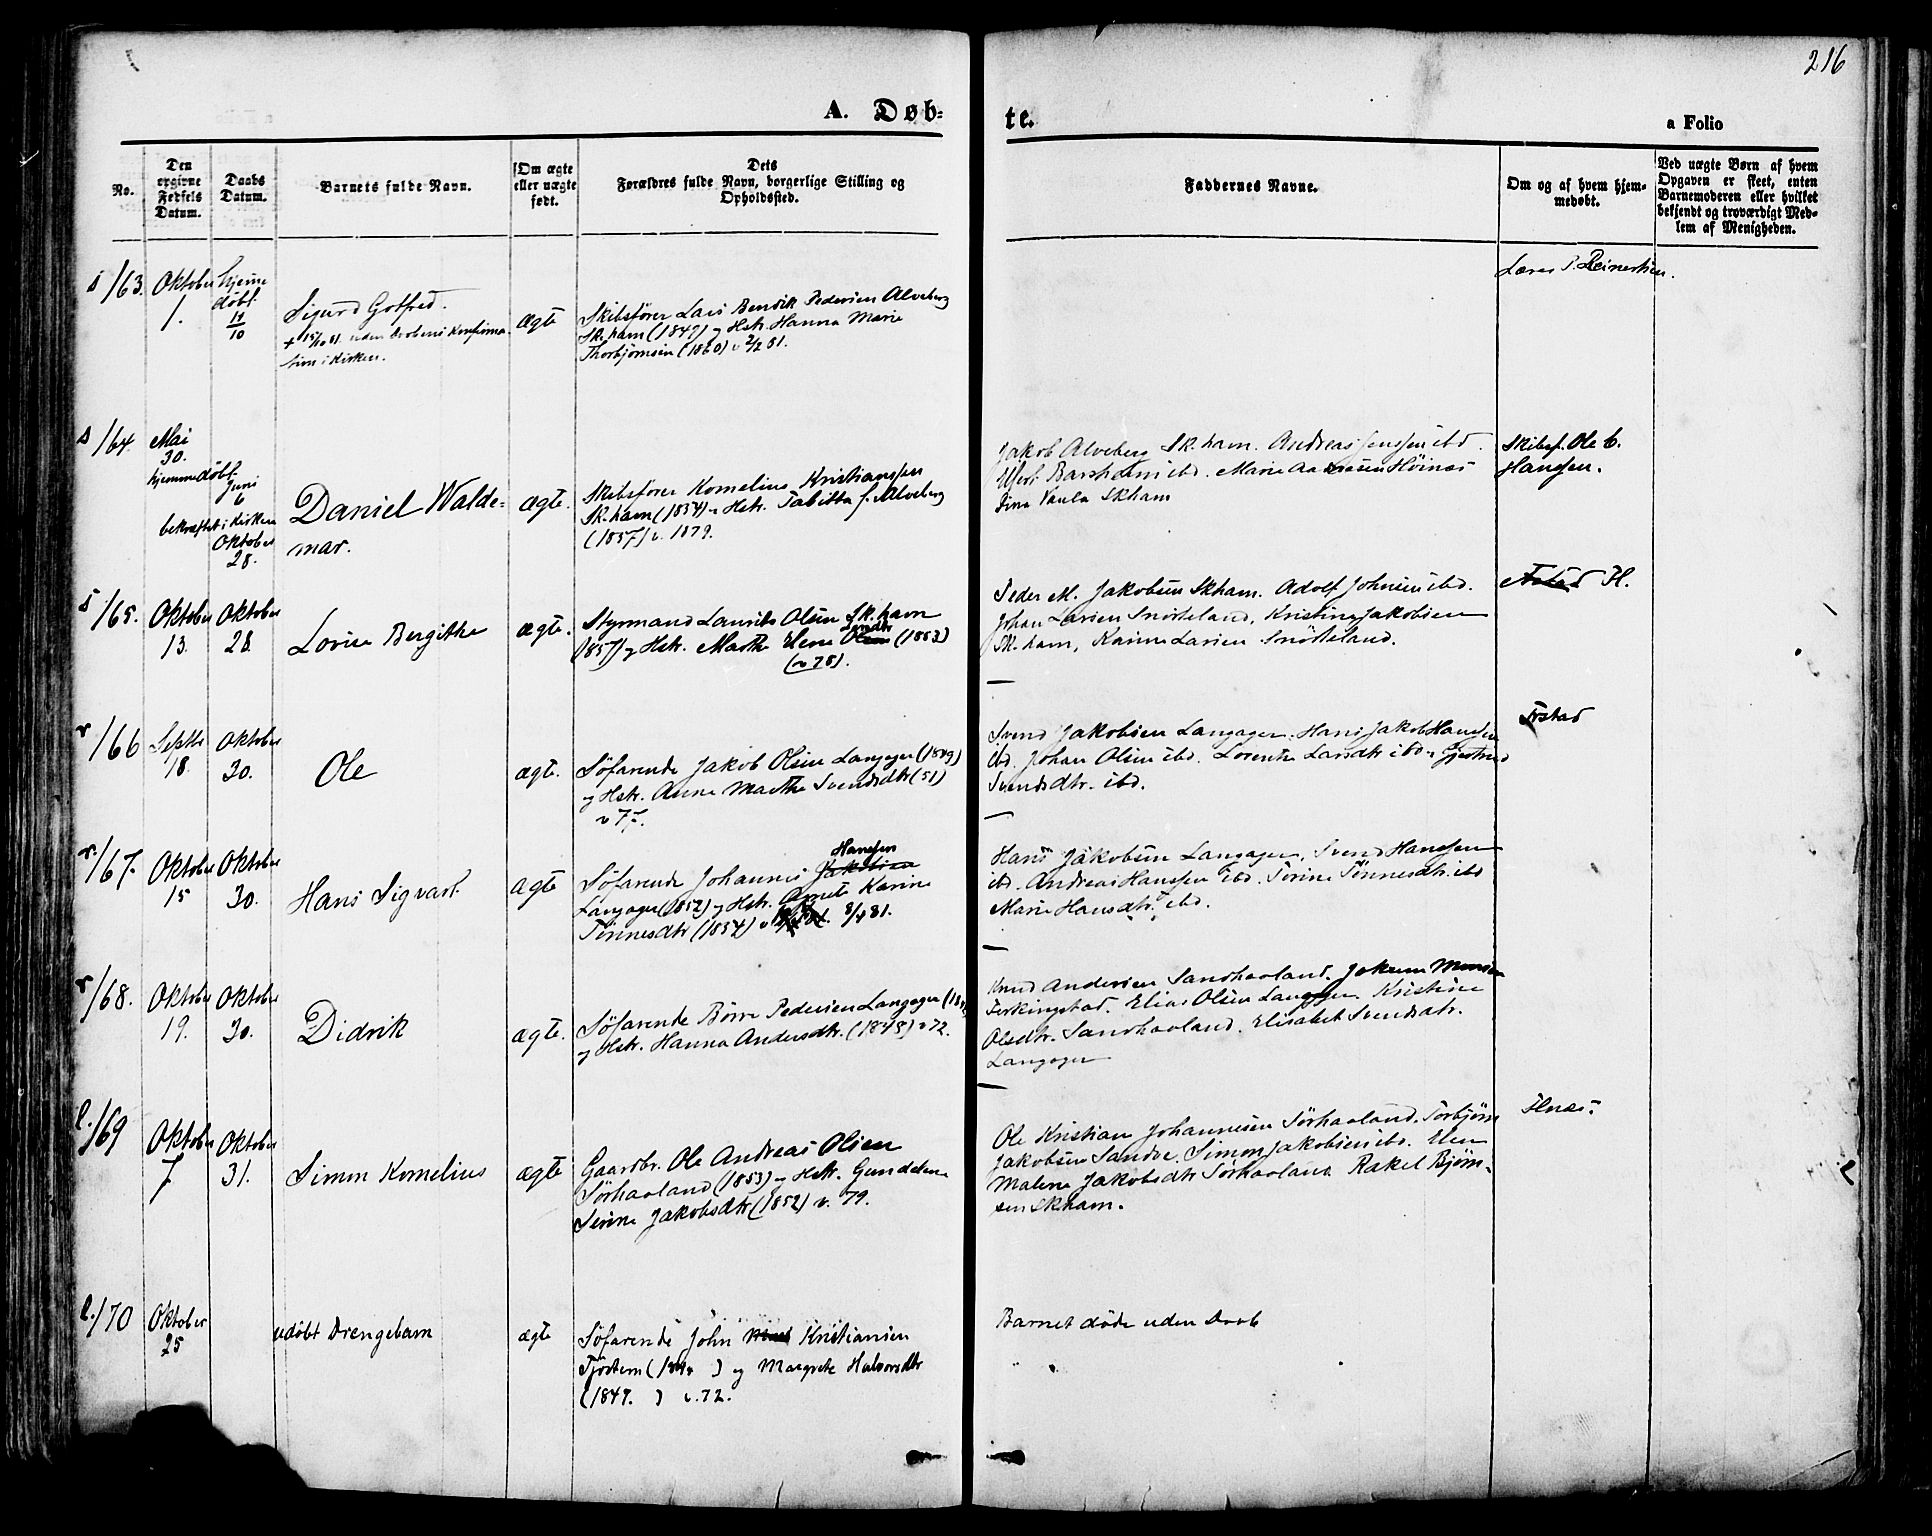 216
A. Døb-
te.
a Folio
No.
Den opgivne Fødsels Datum.
Daabs Datum.
Barnets fulde Navn.
Om ægte eller uægte født.
Dets Forældres fulde Navn, borgerlige Stilling og Opholdssted.
Faddernes Navne.
Om og af hvem hjem-
medøbt.
Ved uægte Børn af hvem
Opgaven er skeet, enten
Barnemoderen eller hvilket
bekjendt og troværdigt Med-
lem af Menigheden.
s/63.
Oktober
1.
hjemme
døbt
11/10
Sigurd Gotfred.
+ 15/10 81 uden Daabens Konfirma-
tion i Kirken.
ægte
Skibsfører Lars Bendik Pedersen Alveberg
Sk.havn (1849) og Hstr. Hanna Marie
Thorbjørnsen (1860) v 2/2 81.
Lærer P. Reinertsen.
s/64.
Mai
30.
hjemmedøbt
Juni
6
bekræftet i Kirken
Oktober
28.
Daniel Walde-
mar.
ægte.
Skibsfører Kornelius Kristianssen
Sk.havn (1854) og Hstr. Tabitta f. Alveberg
(1857) v. 1879.
Jakob Alveberg Sk.havn. Andreas Jenssen ibd.
ibd. Marie Høines
Tina Skhavn
Skibsf. Ole C.
Hanssen.
s/65.
Oktober
13.
Oktober
28.
Lovise Bergithe
ægte.
Styrmand Laurits Olsen Sk.havn
(1857) og Hstr. Marthe Elene Olsen (1853)
(v 78).
Peder M. Jakobsen Skhavn. Adolf Johnsen ibd.
Johan Larsen Snørteland, Kristine Jakobsen
Sk.havn, Karine Larsen Snørteland.
H.
r/66
Septbr
18.
Oktober
30.
Ole
ægte.
Søfarende Jakob Olsen Langager (1849)
og Hstr. Anne Marthe Svendsdtr (51)
v 77.
Svend Jakobsen Langager. Hans Jakob Hanssen
ibd. Johan Olsen ibd. Lorentse Larsdtr ibd. Gjertrud
Svendsdtr. ibd.
r/67.
Oktober
15
Oktober
30.
Hans Sigvart
ægte
Hanssen
Søfarende Johannes Jakobsen
Langager (1852) og Hstr. Agnete Karine
Tønnesdtr (1854) v 8/4 81.
Hans Jakobsen Langager, Svend Hanssen
ibd. Andreas Hanssen ibd. Serine Tønnesdtr. ibd
Marie Hansdtr. ibd.
r/68.
Oktober
19.
Oktober
30.
Didrik
ægte.
Søfarende Børre Pedersen Langager
og Hstr. Hanna Andersdtr. (1848) v 72.
Knud Andersen Sandhaaland. Jokum Monsen
Ferkingstad. Elias Olsen Langager. Kristine
Olsdtr. Sandhaaland. Elisabet Svendsdtr.
Langager
l./69
Oktober
7
Oktober
31.
Simon Kornelius
ægte
Gaardbr. Ole Andreas Olsen
Sørhaaland (1853) og Hstr. Gundelena
Serine Jakobsdtr (1852) v. 79.
Ole Kristian Johannesen Sørhaaland. Torbjørn
Jakobsen Sandve. Simon Jakobsen ibd. Elen
Malene Jakobsdtr Sørhaaland. Rakel Bjørn-
sen Skhavn.
l./70
Oktober
25
udøbt Drengebarn
ægte
Søfarende John Kristiansen
Tjøstem og Margrete Halvorsdtr
(1849. ) v. 72.
Barnet døde uden Daab